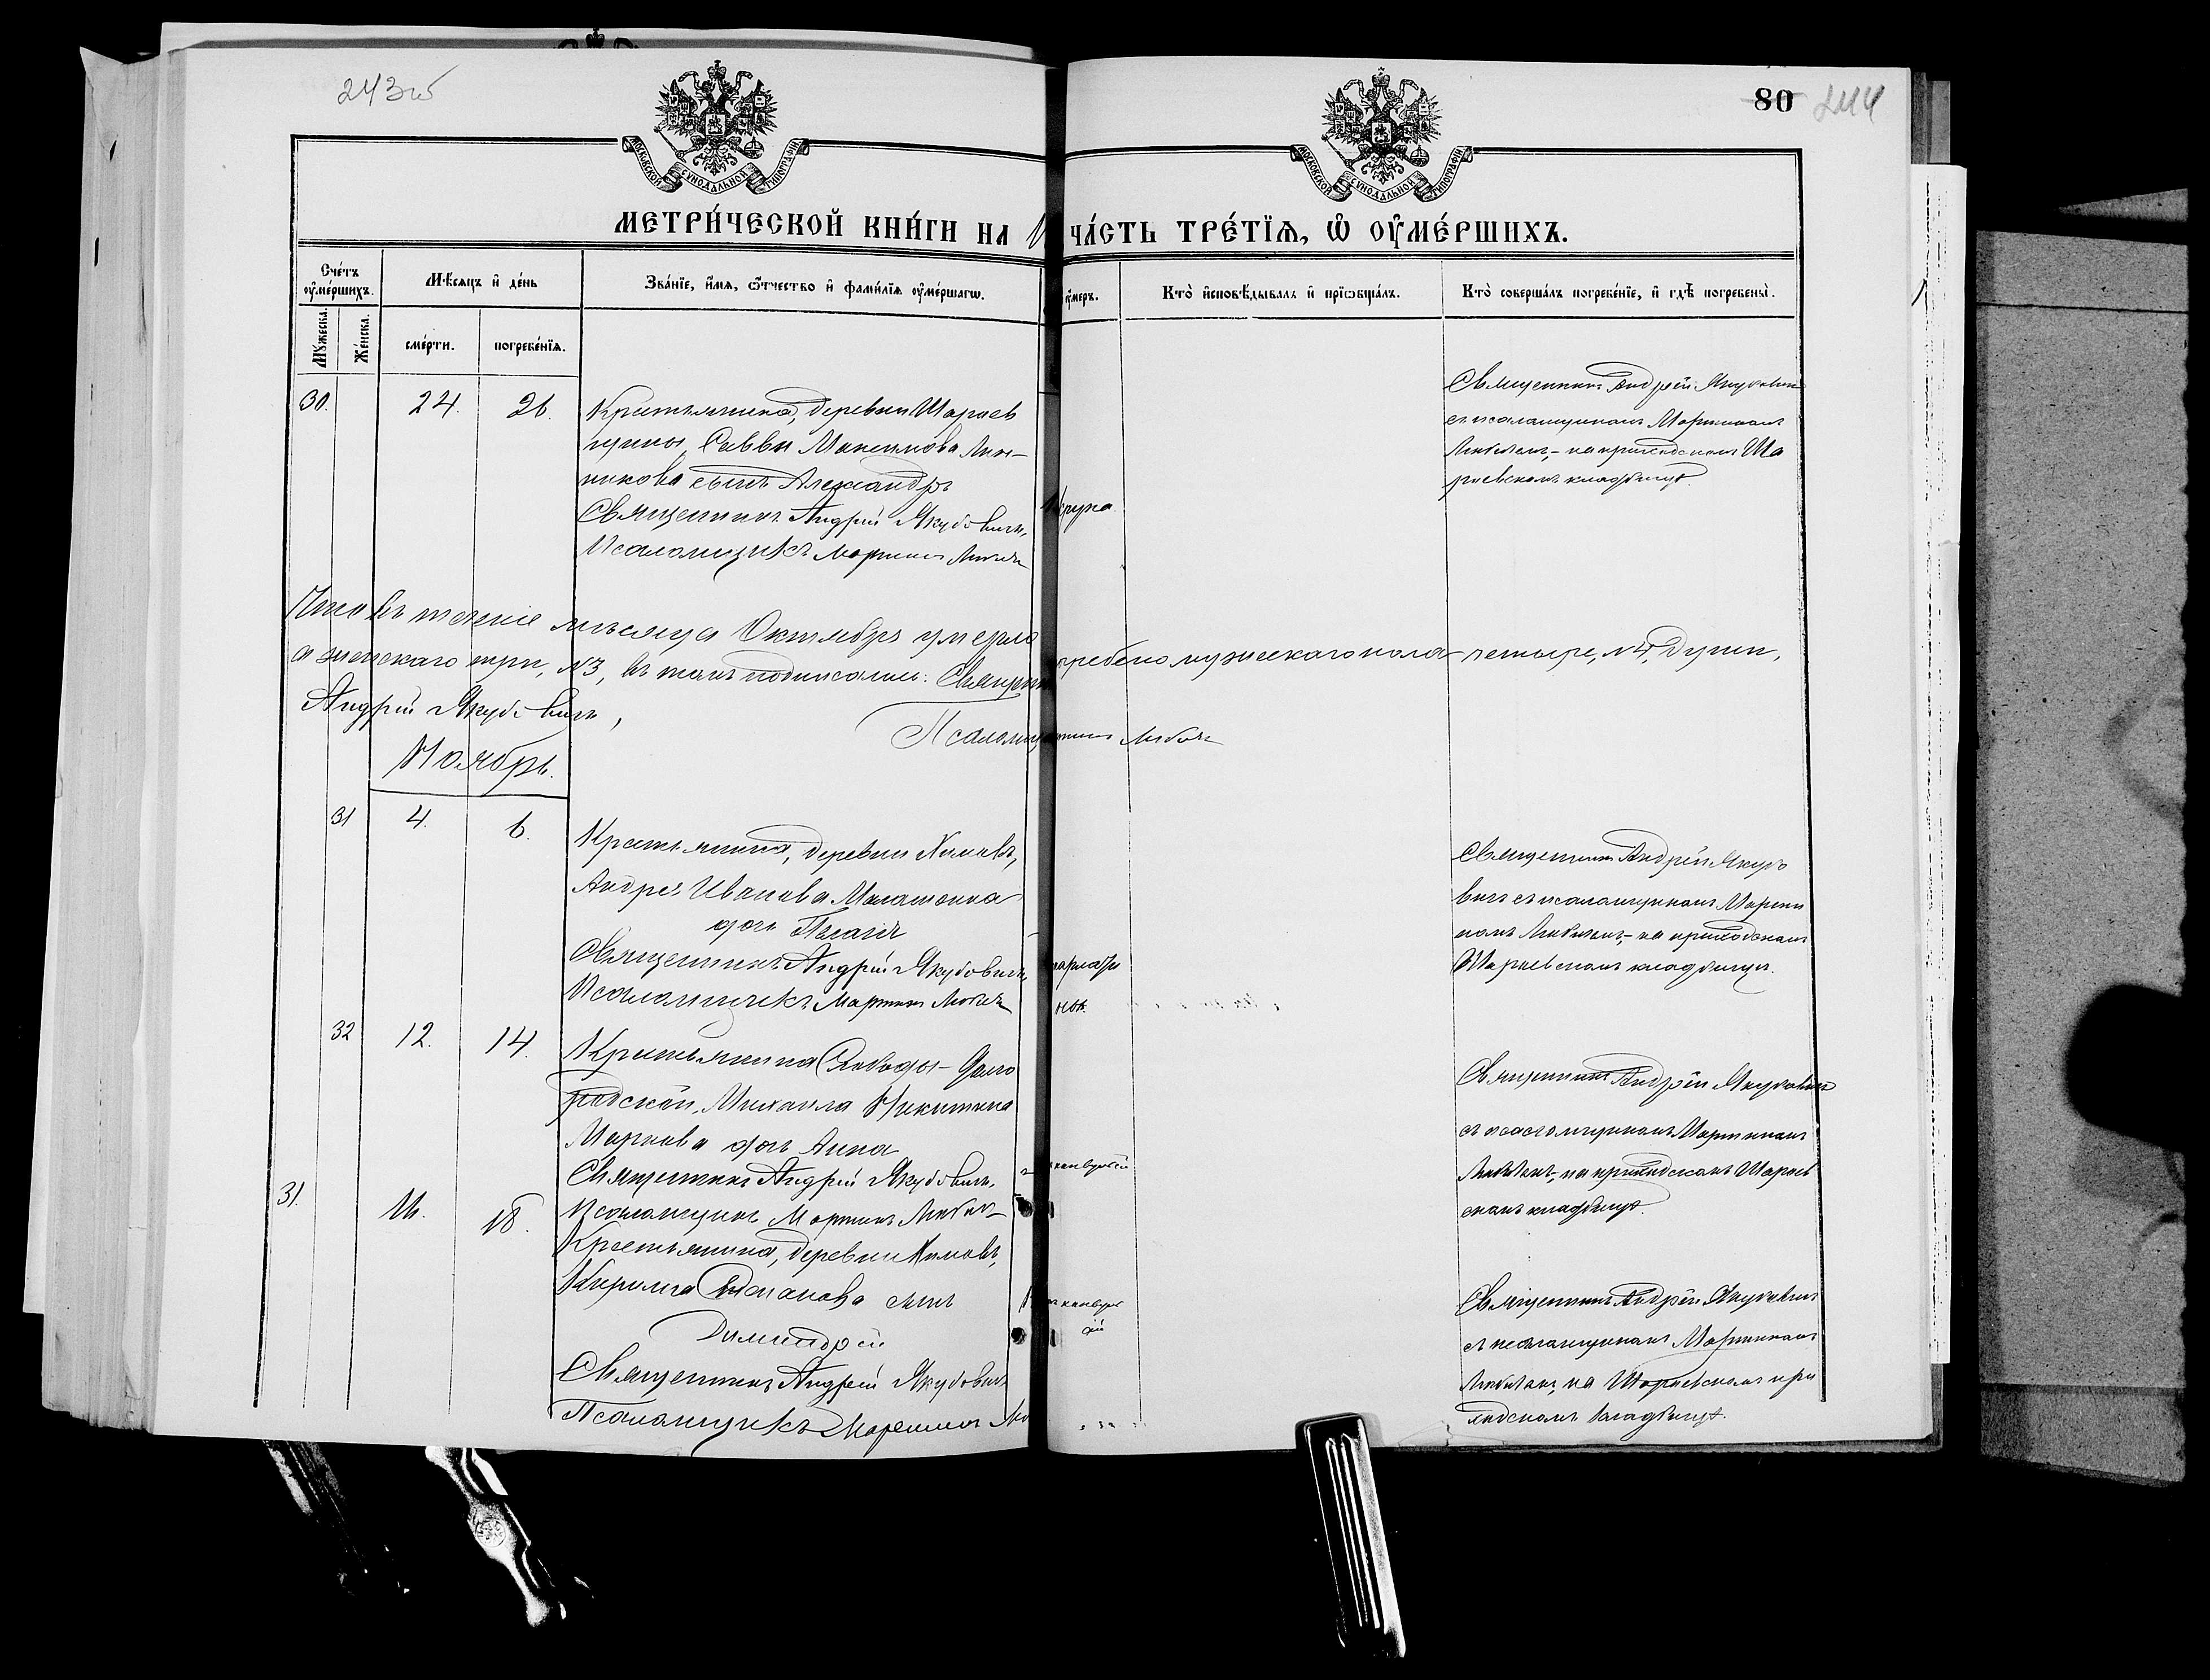 243об
80 244
МОСКОВСКОЙ СѴНОДАЛЬНОЙ ТИПОГРАФІИ
МОСКОВСКОЙ СѴНОДАЛЬНОЙ ТИПОГРАФІИ
МЕТРИ́ЧЕСКОЙ КНИ́ГИ НА
ЧА́СТЬ ТРЕ́ТІѦ, Ѡ҆ ОУ҆МЕ́РШИХЪ.
Сче́тъ оу҆ме́ршихъ.
Мꙋ́жеска.
Же́нска.
Мѣ́сяцъ и҆ де́нь
сме́рти.
погребе́нїѧ.
Зва́нїе, и҆́мѧ, ѻ҆́тчество и҆ фами́лїѧ оу҆ме́ршагѡ.
оу҆́меръ.
Кто̀ и҆сповѣ́дывалъ и҆ прїѡбща́лъ.
Кто̀ соверша́лъ погребе́нїе, и҆ гдѣ̀ погребены̀.
30. 24. 26.
Крестьянина, деревни Шараев
щины, Саввы Максимова
сынъ Александръ
Священникъ Андрей Якубовичъ,
Псаломщикъ Мартинъ Любичъ
Священникъ Андрей Якубовичъ
съ псаломщикомъ Мартиномъ
Любичемъ,- на приходскомъ Ша
раевскомъ кладбищѣ.
Что въ теченіе мѣсяца Октября умерло
погребено мужескаго пола четыре, №4, души,
а женскаго три, №3, въ томъ подписались: Священникъ
Андрей Якубовичъ,
Псаломщикъ Мартинъ Любичъ
Ноябрь.
31 4. 6.
Крестьянина, деревни Химовъ,
Андрея Иванова
дочь Пелагія
Священникъ Андрей Якубовичъ
Псаломщикъ Мартинъ Любичъ
Священникъ Андрей Якубо
вичъ съ псаломщикомъ Марти
номъ Любичемъ,- на приходскомъ
Шараевскомъ кладбищѣ.
32 12. 14.
Крестьянина Слободы-
Михаила Никитина
Маркова дочь Анна
Священникъ Андрей Якубовичъ,
Псаломщикъ Мартинъ Любичъ
Священникъ Андрей Якубовичъ
съ псаломщикомъ Мартиномъ
Любичемъ,- на приходскомъ Шараев
скомъ кладбищѣ.
31. 16. 18.
Крестьянина, деревни Химовъ,
Кирилла Степанова сынъ
Священникъ Андрей Якубовичъ
Псаломщикъ Мартинъ
Священникъ Андрей Якубовичъ
съ псаломщикомъ Мартиномъ
Любичемъ, на Шараевскомъ при
ходскомъ кладбищѣ.